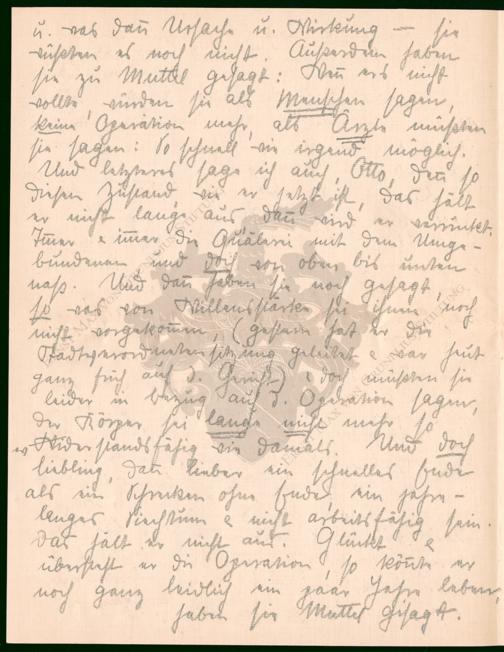 u. was dann Ursache u. Wirkung — sie
wüßten es noch nicht. Außerdem haben
sie zu Muttel gesagt: Wenn ers nicht
wollte, würden sie als Menschen sagen,
keine Operation mehr, als Ärzte müßten
sie sagen: so schnell wie irgend möglich.
Und letzteres sage ich auch, Otto, denn so
diesen Zustand, wie er jetzt ist, das hält
er nicht lange aus, dann wird er verrückt.
Immer & immer die Quälerei mit dem Umge-
bundenen und doch von oben bis unten
naß. Und dann haben sie noch gesagt,
so was von Willensstärke sei ihnen noch
nicht vorgekommen, (gestern hat er die
Stadtverordnetensitzung geleitet & war heut
ganz früh auf d. Gericht) & doch müßten sie
leider in bezug auf d. Operation sagen,
der Körper sei lange nicht mehr so
widerstandsfähig wie damals. Und doch
liebling, dann lieber ein schnelles Ende
als ein Schrecken ohne Ende, ein jahre-
langes Siechtum & nicht arbeitsfähig sein.
Das hält er nicht aus. Glückt &
übersteht er die Operation, so könnte er
noch ganz leidlich ein paar Jahre leben,
haben sie Muttel gesagt.